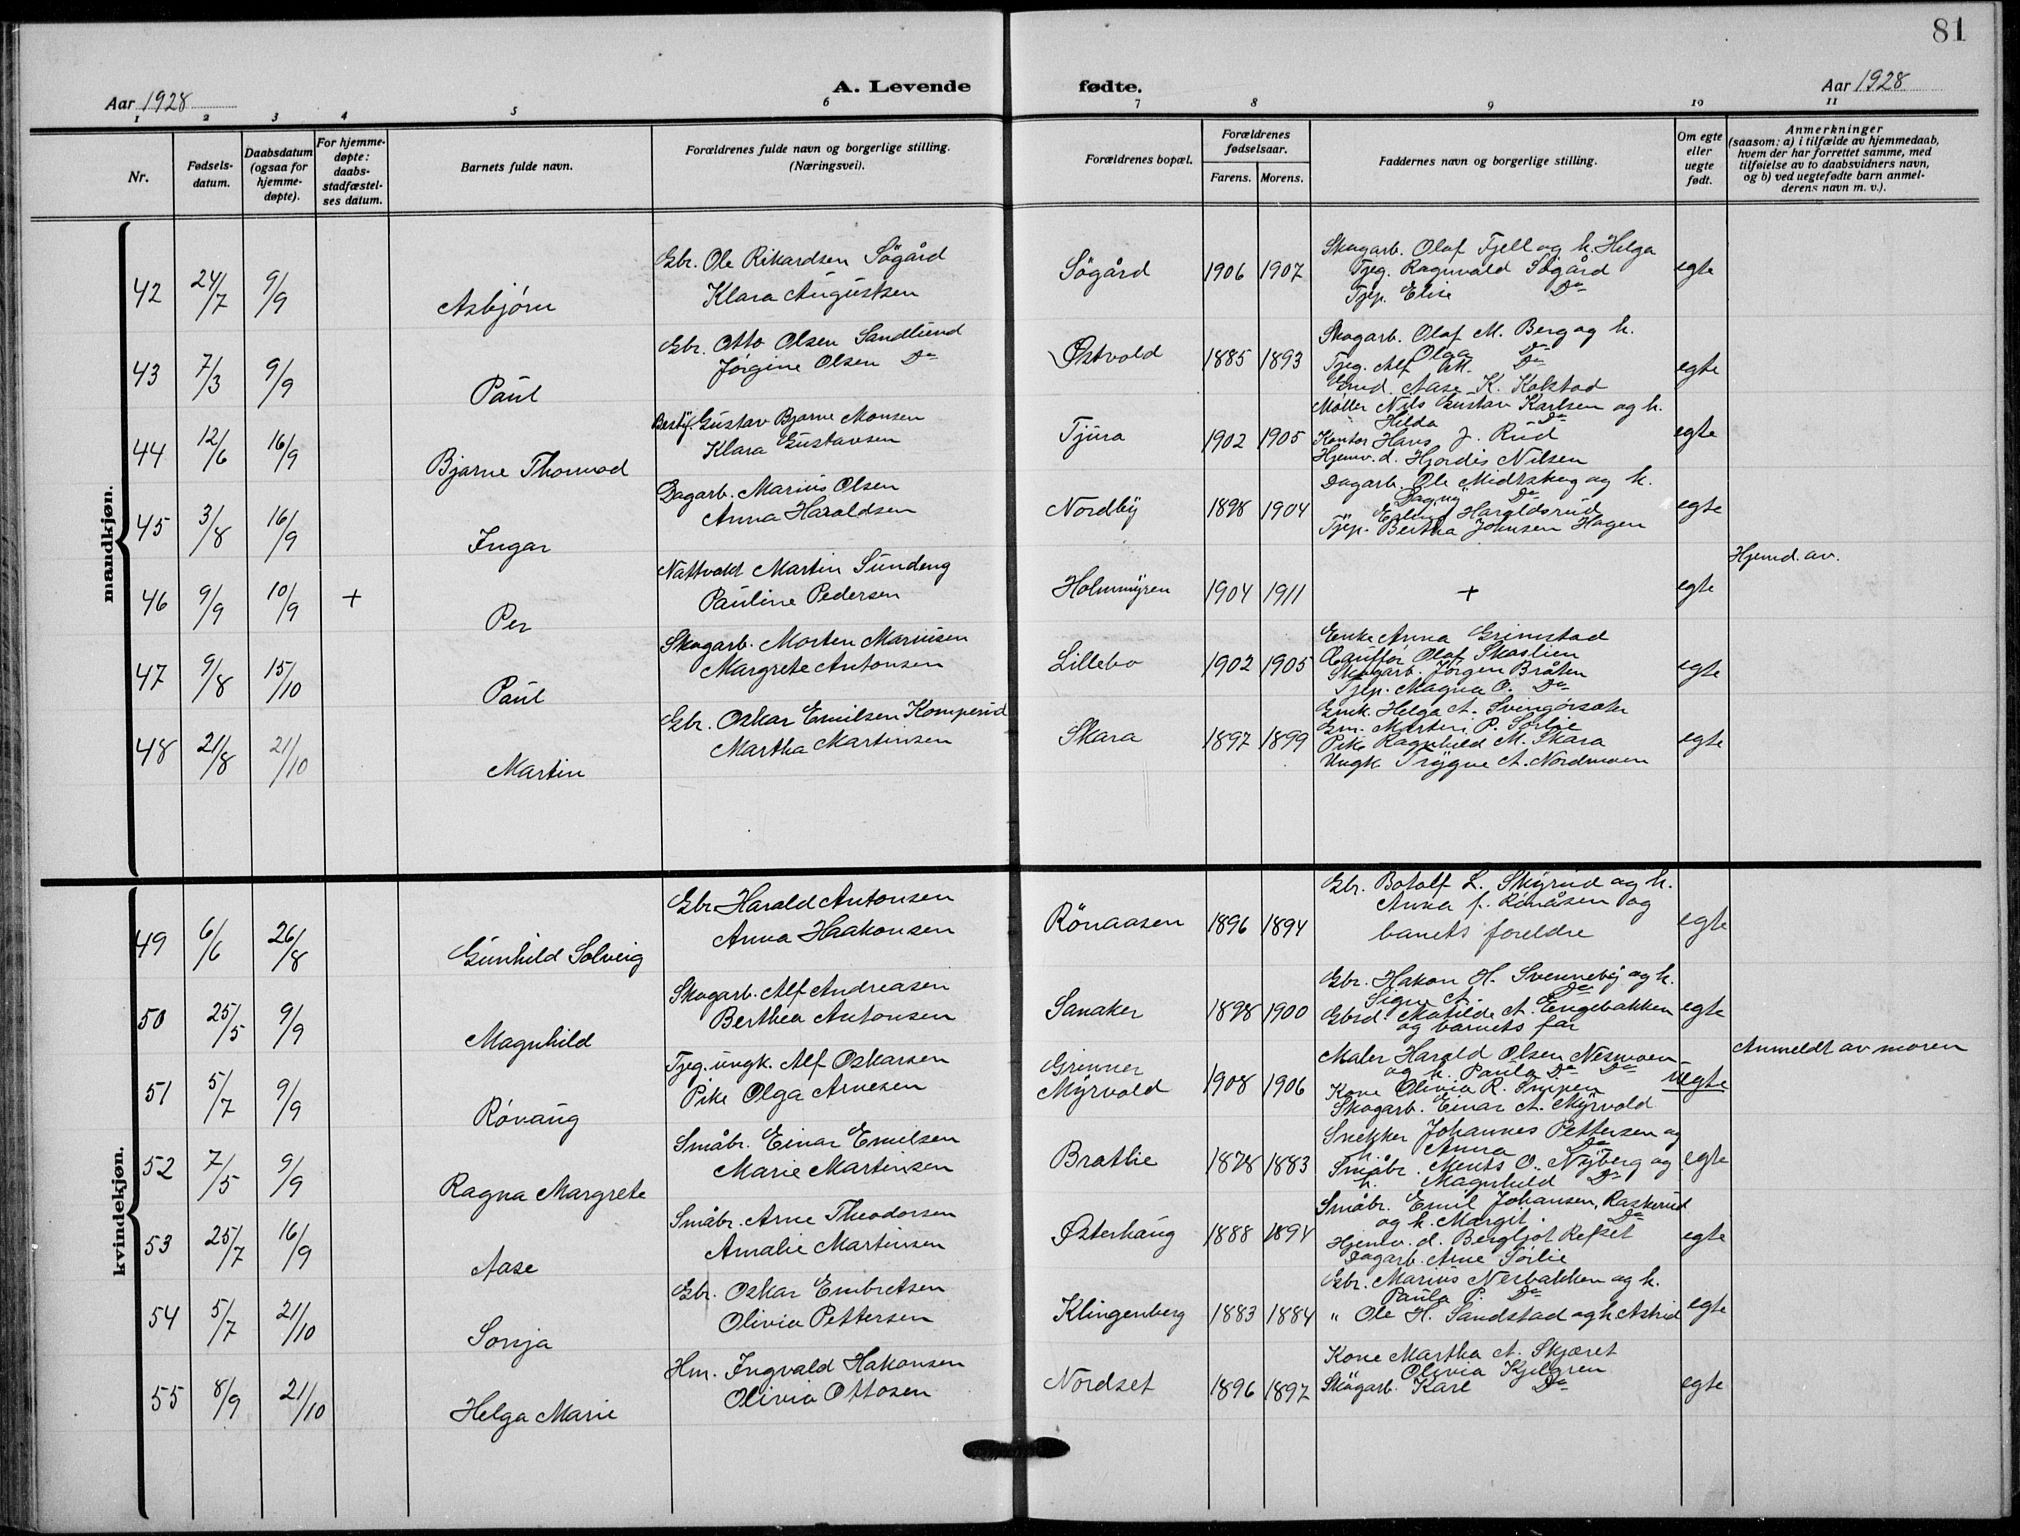 81
A. Levende fødte.
Aar 1928
Aar 1928
1 2 3 4 5 6 7 8 9 10 11
Nr.
Fødsels-
datum.
Daabsdatum
(ogsaa for
hjemme-
døpte).
For hjemme-
døpte:
daabs-
stadfæstel-
ses datum.
Barnets fulde navn.
Forældrenes fulde navn og borgerlige stilling.
(Næringsvei).
Forældrenes bopæl.
Forældrenes
fødselsaar.
Farens. Morens.
Faddernes navn og borgerlige stilling.
Om egte
eller
uegte
født.
Anmerkninger
(saasom: a) i tilfælde av hjemmedaab,
hvem der har forrettet samme, med
tilføielse av to daabsvidners navn,
og b) ved uegtefødte barn anmel-
derens navn m. v.).
mandkjøn.
42 24/7 9/9 Asbjørn
Gbr. Ole Rikardsen Sögård
Klara Augustsen
Sögård 1906 1907
Skogarb. Olaf Fjell og h. Helga
Tjeg. Ragnvald Sögård
Tjep. Elise Do
egte
43 7/3 9/9 Paul
Gbr. Otto Olsen Sandlund
Jørgine Olsen Do
Østvold 1885 1893
Skogarb. Olaf M. Berg og h.
Olga Do
Tjeg. Alf M. Do
Aase K. Kolstad
egte
44 12/6 16/9 Bjarne Thormod
Gustav Bjarne Monsen
Klara Gustavsen
Tjura 1902 1905
Møller Nils Gustav Karlsen og h.
Hilda Do
Kontor Hans J. Rud
Hjemv. d. Hjordis Nilsen
egte
45 3/8 16/9 Ingar
Dagarb. Marius Olsen
Anna Haraldsen
Nordby 1898 1904
Dagarb. Ole Midtskog og h.
Dagny Do
Erling Haraldsrud
Tjep. Bertha Johnsen Hagen
egte
46 9/9 10/9 + Per
Martin Sundeng
Pauline Pedersen
Holmmyren 1904 1911
+
egte
Hjemd. av.
47 9/8 15/10 Paul
Skogarb. Morten Mariusen
Margrete Antonsen
Lillebo 1902 1905
Enke Anna Grimstad
Olaf Skaslien
Skogarb. Jørgen Bråten
Tjep. Magna O. Do
egte
48 21/8 21/10 Martin
Gbr. Oskar Emilsen Komperud
Martha Martinsen
Skara 1897 1899
Helga A.
Gm. Morten P. Sörlie
Pike Ragnhild M. Skara
Ungk. Trygve A. Nordmoen
egte
kvindekjøn.
49 6/6 26/8 Gunhild Solveig
Gbr Harald Antonsen
Anna Haakonsen
Rönaasen 1896 1894
Gbr. Botolf L. Skyrud og h.
Anna f. Rönåsen og
banets foreldre
egte
50 25/5 9/9 Magnhild
Skogarb. Alf Andreasen
Berthea Antonsen
Sanaker 1898 1900
Gbr. Hakon H. Svenneby og h.
Signe A. Do
Gbrd. Matilde A. Engebakken
og barnets far
egte
51 5/7 9/9 Róvaug
Tjeg. ungk. Alf Oskarsen
Pike Olga Arnesen
Grinner
Myrvold 1908 1906
Maler Harald Olsen Nesmoen
og h. Paula Do Do
Kone Olivia R. Snipen
Skogarb. Einar A. Myrvold
uegte
Anmeldt av moren
52 7/5 9/9 Ragna Margrete
Småbr. Einar Emilsen
Marie Martinsen
Bratlie 1878 1883
Snekker Johannes Pettersen og
h. Anna Do
Småbr. Ments O. Nyberg og
h. Magnhild Do
egte
53 25/7 16/9 Aase
Småbr. Arne Theodorsen
Amalie Martinsen
Østerhaug 1888 1894
Småbr. Emil Johansen, Raskerud
og h. Margit. Do
Hjemv. d. Bergljot Refset
Dagarb. Arne Sörlie
egte
54 5/7 21/10 Sonja
Gbr. Oskar Embretsen
Olivia Pettersen
Klingenberg 1883 1884
Gbr. Marius Nesbakken og h.
Paula P. Do
" Ole H. Sandstad og h. Astrid
egte
55 8/9 21/10 Helga Marie
Hm. Ingvald Hakonsen
Olivia Ottosen
Nordset 1896 1897
Kone Martha A. Skjæret
Olivia Kjelgren
Skogarb. Karl Do
egte